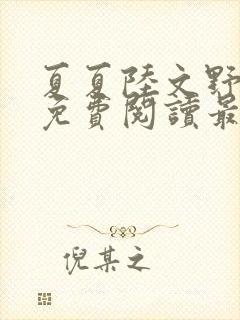 夏夏陸文野
免費閱讀最
倪某之